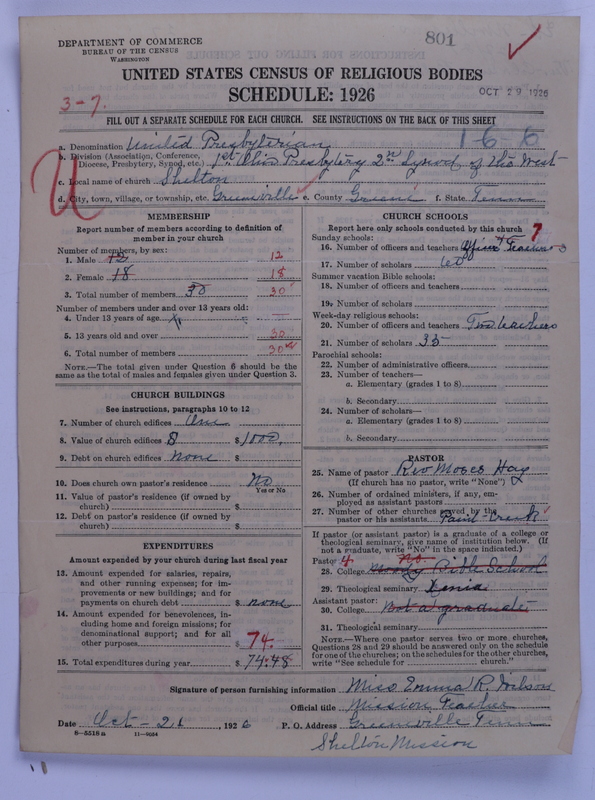 801
DEPARTMENT OF COMMERCE
BUREAU OF THE CENSUS
WASHINGTON
UNITED STATES CENSUS OF RELIGIOUS BODIES
SCHEDULE: 1926
OCT 29 1926
3-7.
FILL OUT A SEPARATE SCHEDULE FOR EACH CHURCH. SEE INSTRUCTIONS ON THE BACK OF THIS SHEET
1-6-6
a. Denomination United Presbyterian
b. Division (Association, Conference, Diocese, Presbytery, Synod, etc.) 1st Ohio Presbytery 2nd Synod of the West
c. Local name of church Shelton
d. City, town, village, or township, etc. Greenville e. County Greene f. State Tenn
U
MEMBERSHIP
Report number of members according to definition of
member in your church
Number of members, by sex:
1. Male 12 12
2. Female 18 18
3. Total number of members 30 30
Number of members under and over 13 years old:
4. Under 13 years of age x
5. 13 years old and over 30
6. Total number of members 30
NOTE.—The total given under Question 6 should be the
same as the total of males and females given under Question 3.
CHURCH BUILDINGS
See instructions, paragraphs 10 to 12
7. Number of church edifices One
8. Value of church edifices $ $1000.
9. Debt on church edifices none $
10. Does church own pastor's residence No
Yes or No
11. Value of pastor's residence (if owned by
church) $
12. Debt on pastor's residence (if owned by
church) $
EXPENDITURES
Amount expended by your church during last fiscal year
13. Amount expended for salaries, repairs,
and other running expenses; for im-
provements or new buildings; and for
payments on church debt $ none
14. Amount expended for benevolences, in-
cluding home and foreign missions; for
denominational support; and for all
other purposes $ 74.
15. Total expenditures during year $ 74.48
CHURCH SCHOOLS
Report here only schools conducted by this church
Sunday schools:
16. Number of officers and teachers 7
17. Number of scholars 60
Summer vacation Bible schools:
18. Number of officers and teachers
19. Number of scholars
Week-day religious schools:
20. Number of officers and teachers Two teachers
21. Number of scholars 35
Parochial schools:
22. Number of administrative officers
23. Number of teachers—
a. Elementary (grades 1 to 8)
b. Secondary
24. Number of scholars—
a. Elementary (grades 1 to 8)
b. Secondary
PASTOR
25. Name of pastor Rev Moses Hay
(If church has no pastor, write "None")
26. Number of ordained ministers, if any, em-
ployed as assistant pastors
27. Number of other churches served by the
pastor or his assistants Paint-Creek
If pastor (or assistant pastor) is a graduate of a college or
theological seminary, give name of institution below. (If
not a graduate, write "No" in the space indicated.)
Pastor:
28. College Moody Bible School no.
29. Theological seminary Xenia
Assistant pastor:
30. College Not a graduate
31. Theological seminary
NOTE.—Where one pastor serves two or more churches,
Questions 28 and 29 should be answered only on the schedule
for one of the churches; on the schedules for the other churches,
write "See schedule for church."
Signature of person furnishing information Miss Emma R. Wilson
Official title Mission Teacher
Date Oct - 21, 1926 P. O. Address Greenville Tenn
8—5518a 11—9054
Shelton Mission